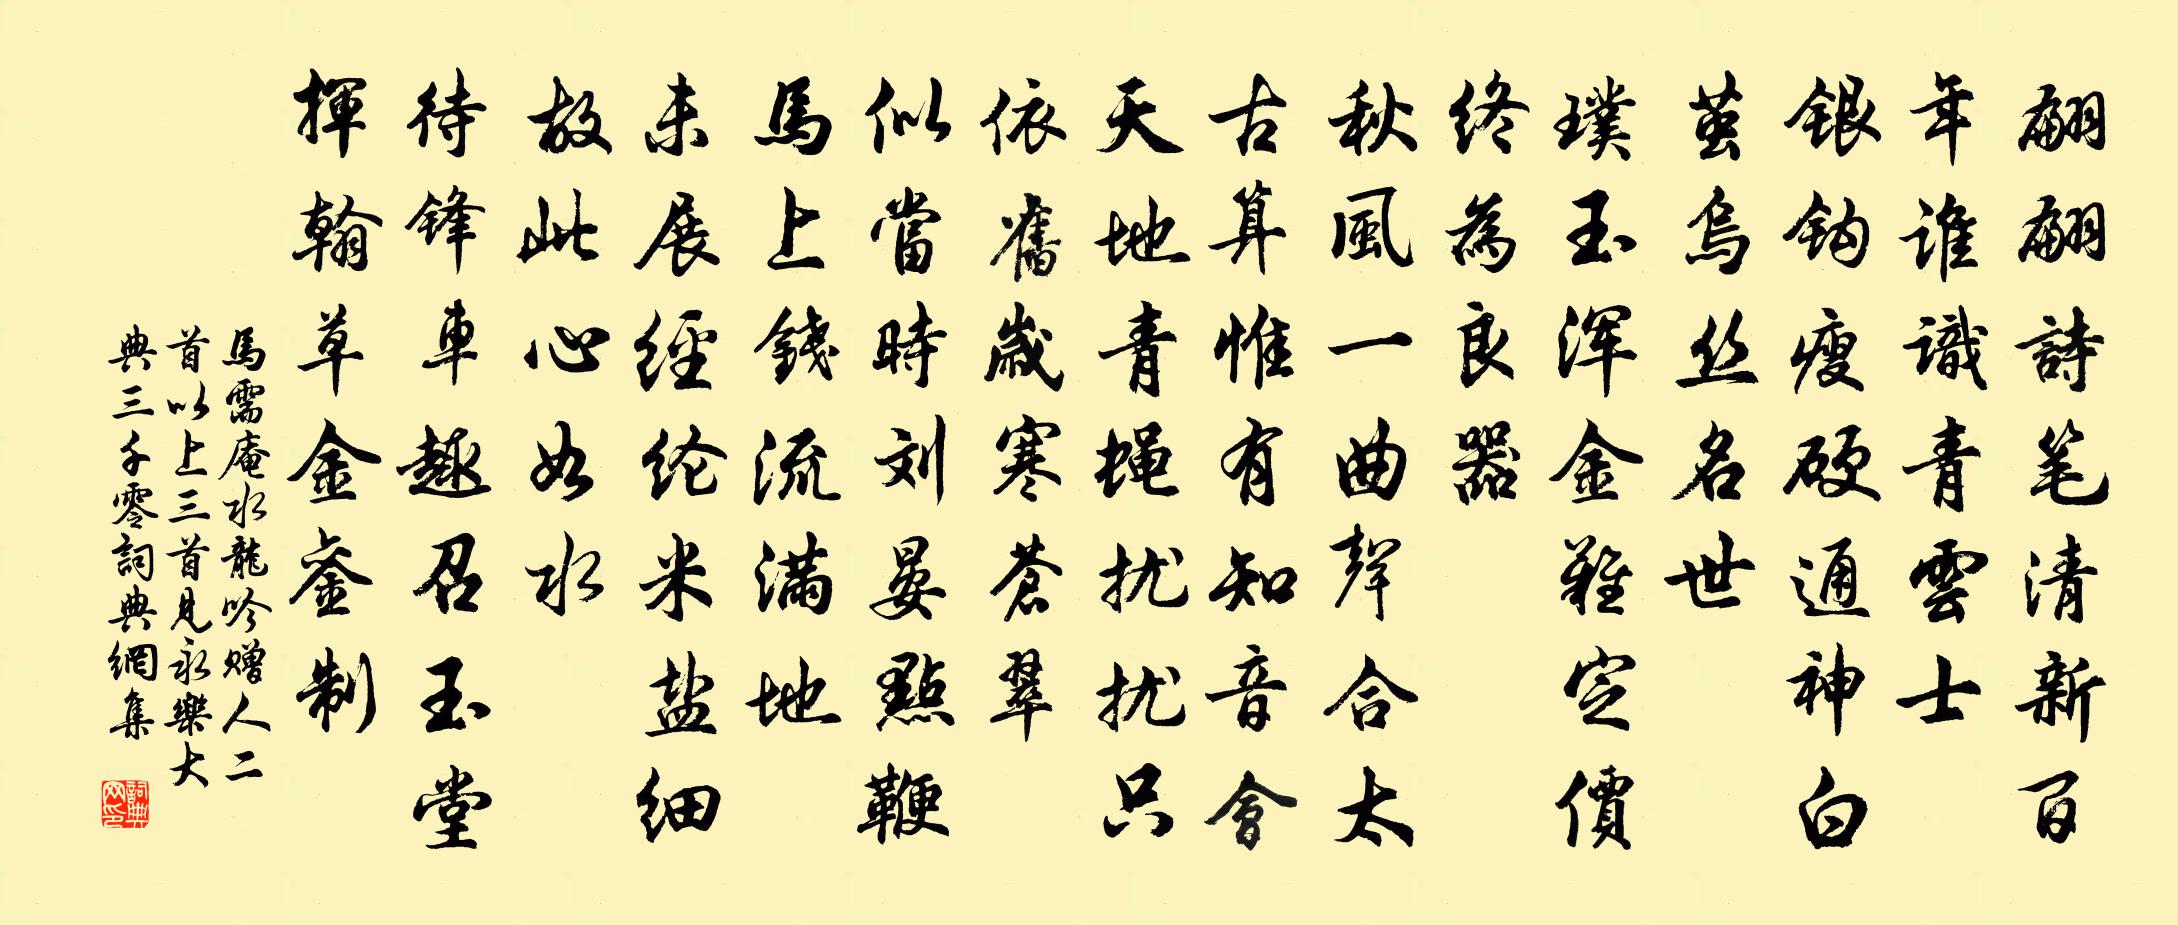 翩翩詩笔清新百
年谁識青雲士
銀钩瘦硬通神白
茧烏丝名世
璞玉浑金難定價
终為良器
秋風一曲聲合太
古算惟有知音會
天地青蝇扰扰只
依舊歲寒蒼翠
似當時刘晏點鞭
馬上錢流满地
未展經纶米盐细
故此心如水
待锋車趣召玉堂
揮翰草金銮制
馬需庵水龍吟赠人二
首以上三首見永樂大
典三千零詞典網集
詞典网印